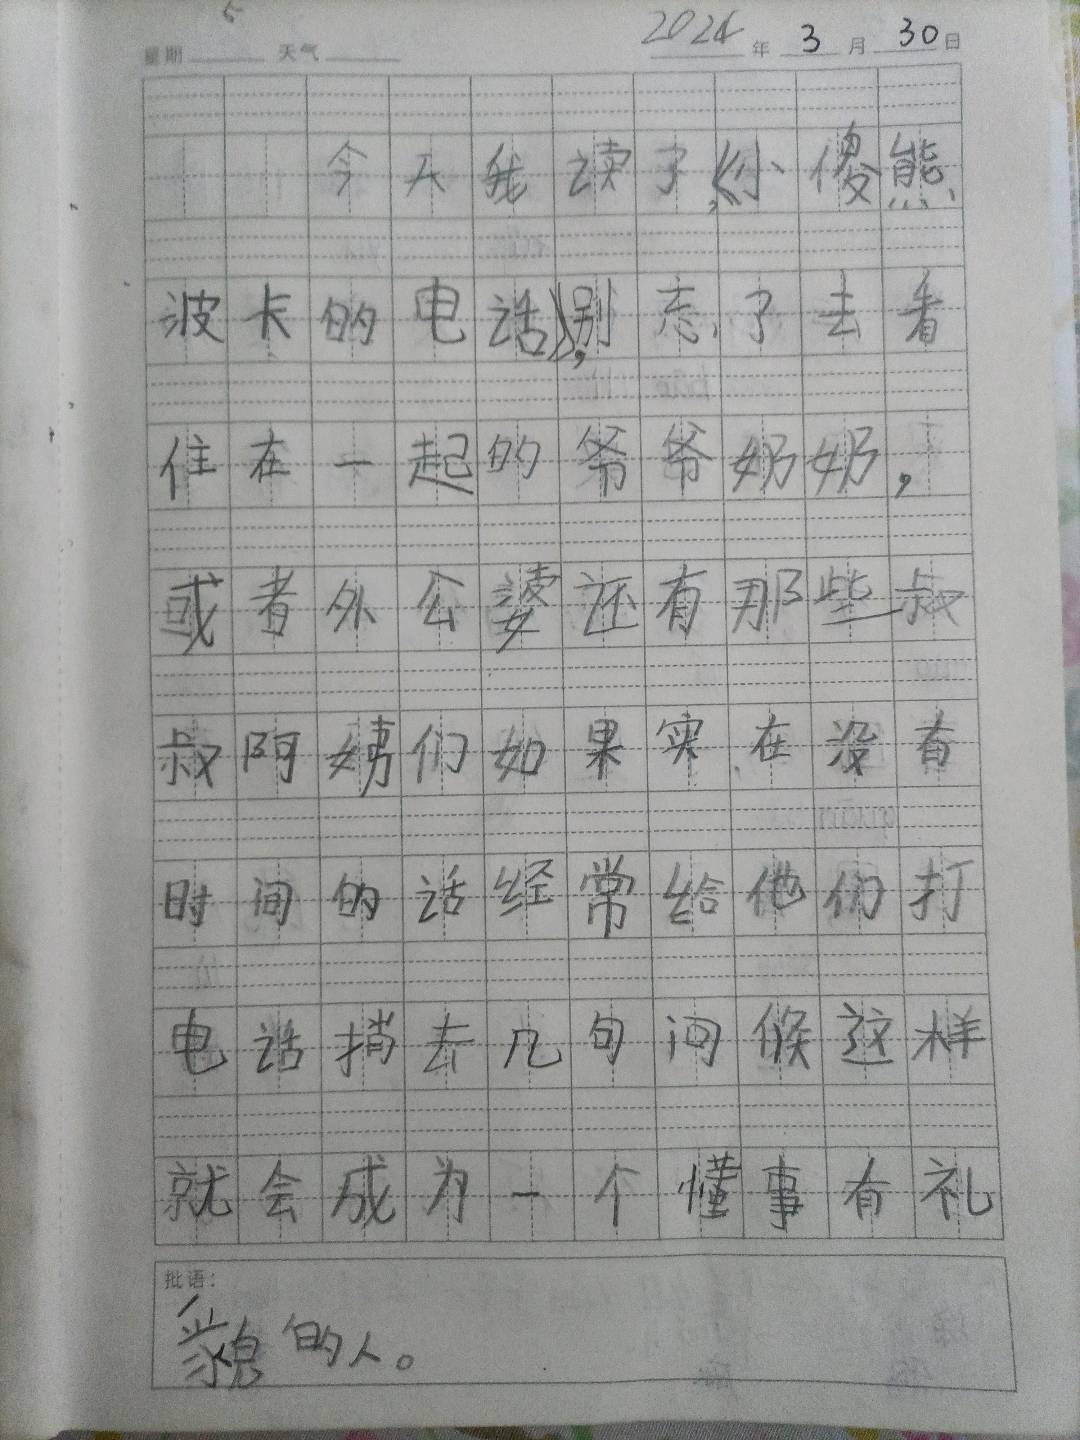 5
2024年3月30日
星期 天气
今天我读了,《小傻熊
波卡的电话》,别忘了去看
住在一起的爷爷奶奶,
或者外公婆还有那些叔
叔阿姨们如果实在没有
时间的话经常给他们打
电话捎去几句问候这样
就会成为一个懂事有礼
批语:
貌的人。